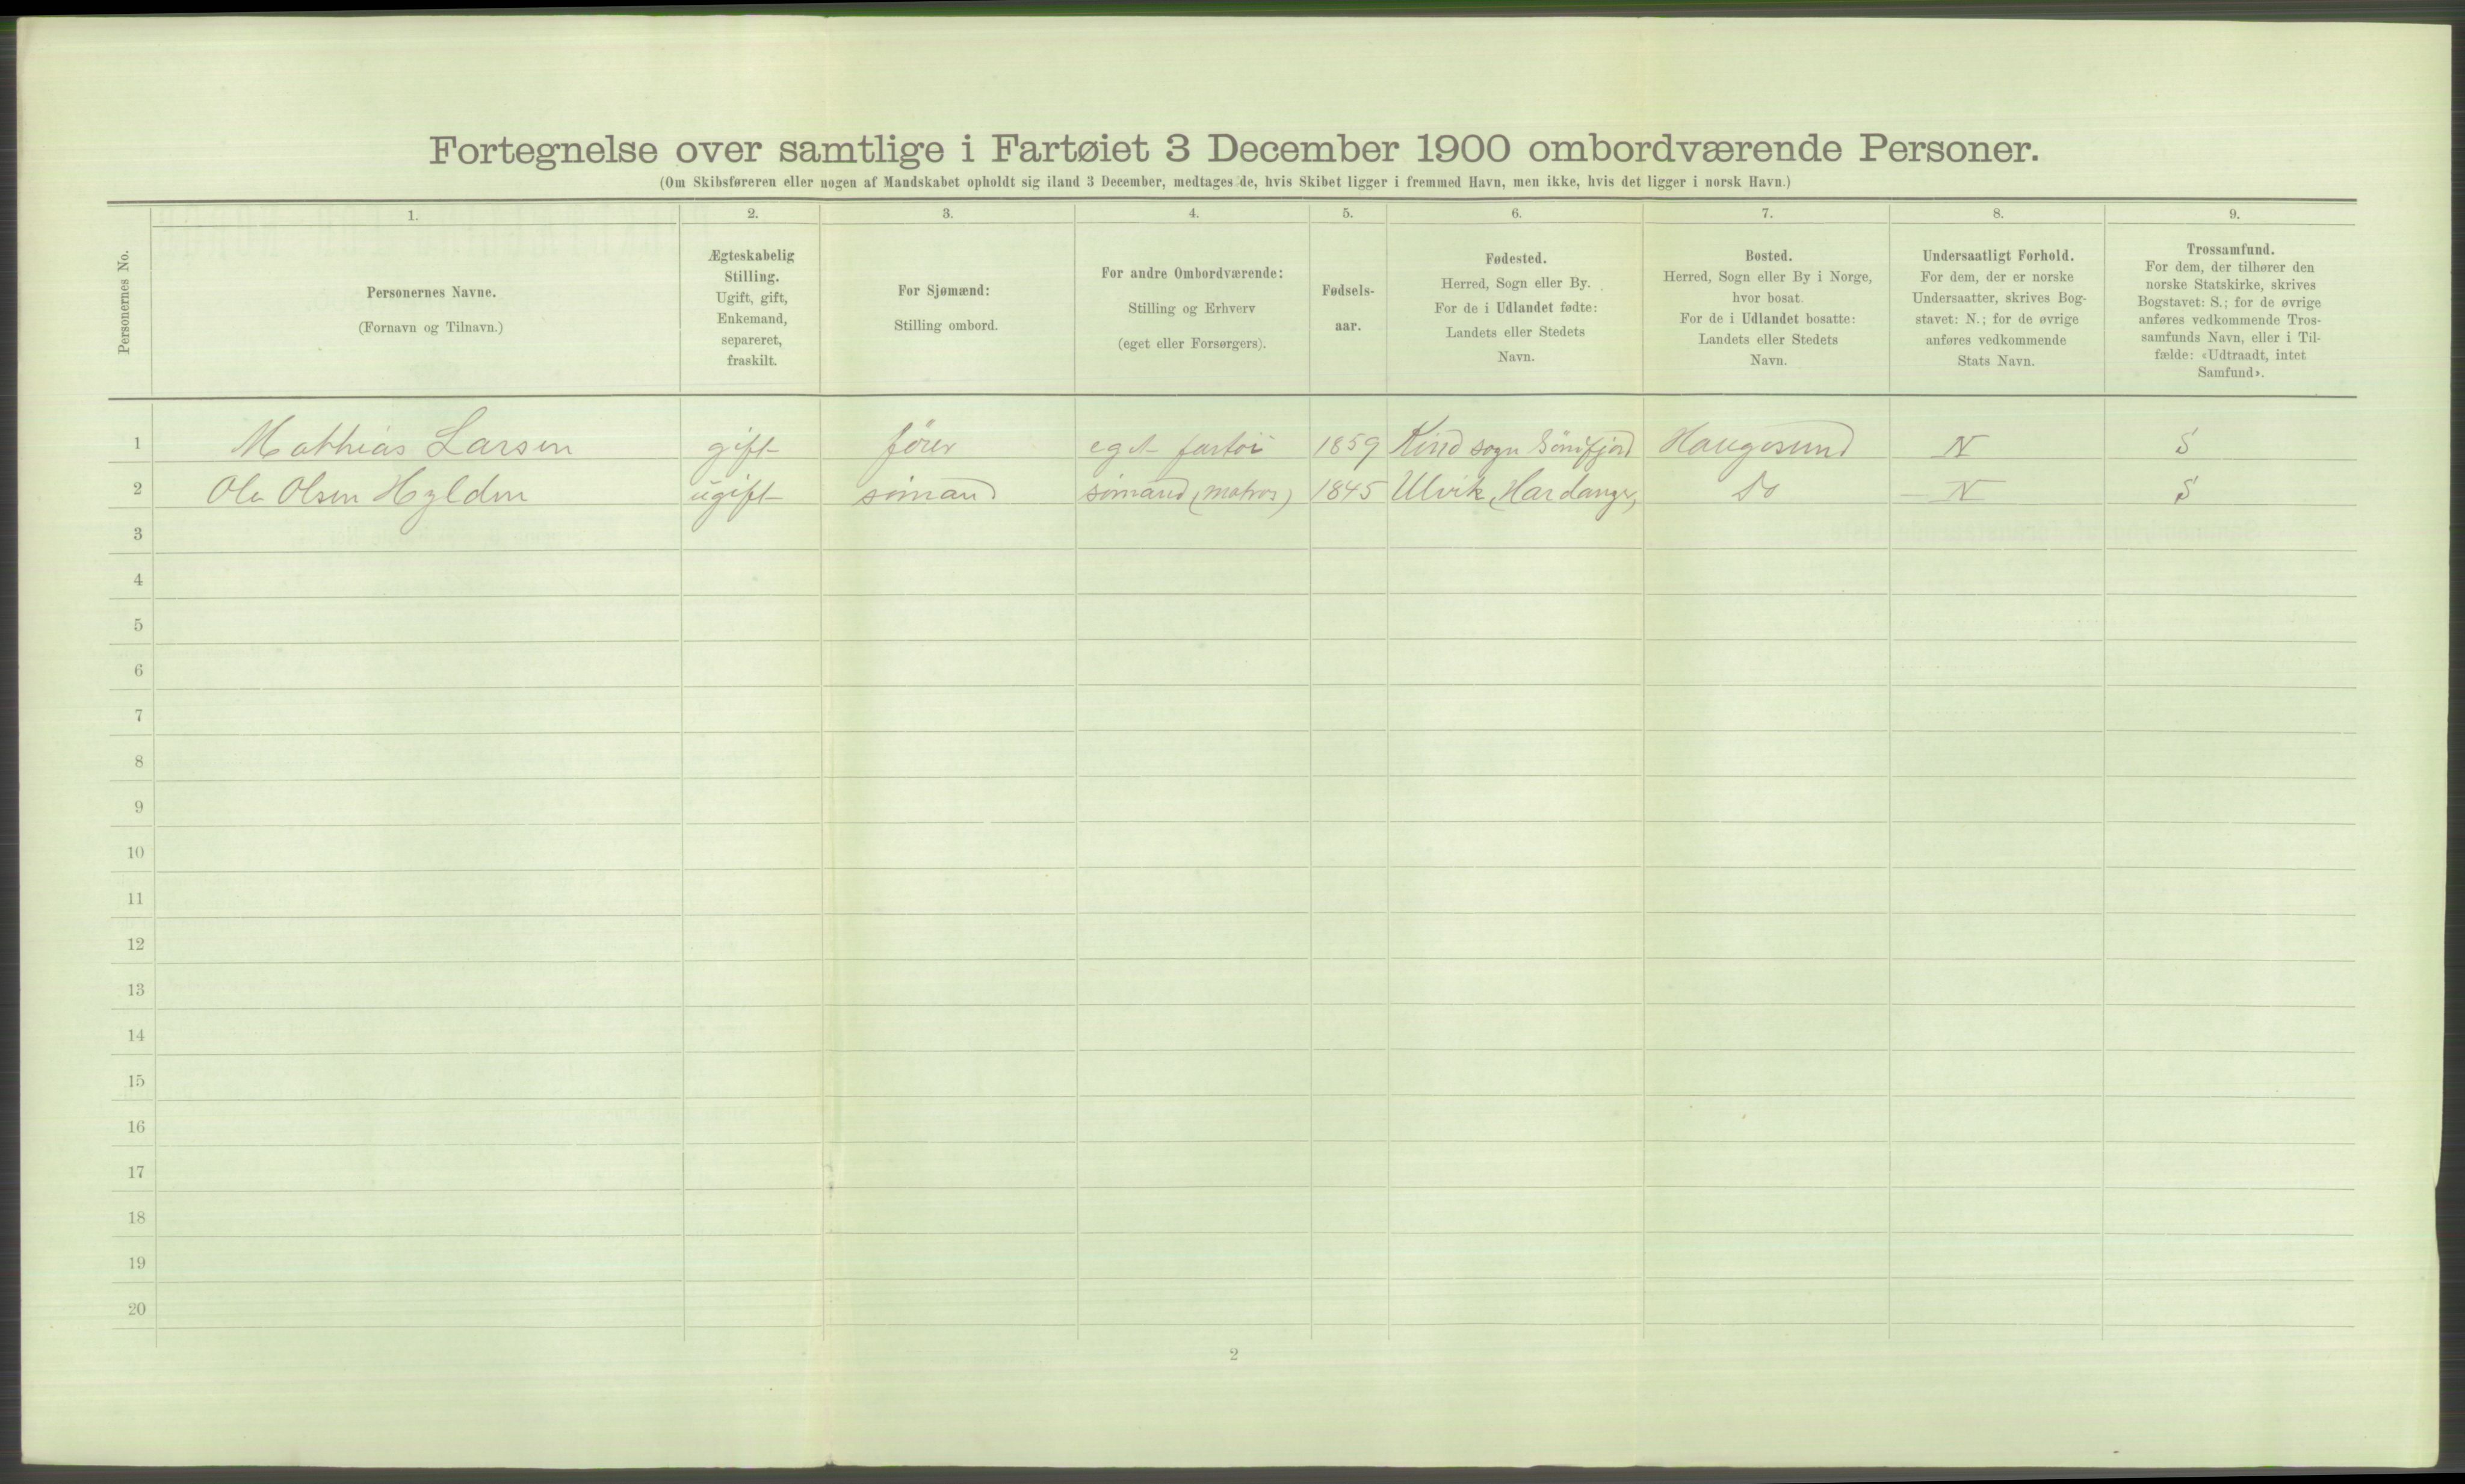 Fortegnelse over samtlige i Fartøiet 3 December 1900 ombordværende Personer.
(Om Skibsføreren eller nogen af Mandskabet opholdt sig iland 3 December, medtages de, hvis Skibet ligger i fremmed Havn, men ikke, hvis det ligger i norsk Havn.)
Personernes No.
1.
Personernes Navne.
(Fornavn og Tilnavn.)
2.
Ægteskabelig
Stilling.
Ugift, gift,
Enkemand,
separeret,
fraskilt.
3.
For Sjømænd:
Stilling ombord.
4.
For andre Ombordværende:
Stilling og Erhverv
(eget eller Forsørgers).
5.
Fødsels-
aar.
6.
Fødested.
Herred, Sogn eller By.
For de i Udlandet fødte:
Landets eller Stedets
Navn.
7.
Bosted.
Herred, Sogn eller By i Norge,
hvor bosat.
For de i Udlandet bosatte:
Landets eller Stedets
Navn.
8.
Undersaatligt Forhold.
For dem, der er norske
Undersaatter, skrives Bog-
stavet: N.; for de øvrige
anføres vedkommende
Stats Navn.
9.
Trossamfund.
For dem, der tilhører den
norske Statskirke, skrives
Bogstavet: S.; for de øvrige
anføres vedkommende Tros-
samfunds Navn, eller i Til-
fælde: «Udtraadt, intet
Samfund».
1 Mathias Larsen gift fører eget fartöi 1859 Kind sogn Söndfjord Haugesund N S
2 Ole Olsen Hylden ugift sömand sömand (matros) 1845 Ulvik, Hardanger, Do N S
3
4
5
6
7
8
9
10
11
12
13
14
15
16
17
18
19
20
2